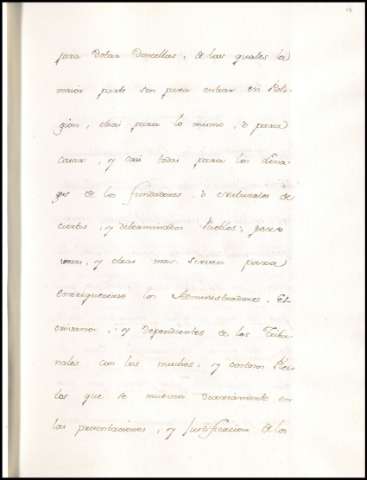 para Dotar Doncellas, de las quales la
maior parte son para entrar en Reli-
gion, otras para lo mismo, o para
casar, y casi todas para los Lina-
ges de los fundadores, o naturales de
ciertos, y determinados Pueblos; pero
y otras mas sirven para
enrriquecerse los Administradores, Es-
crivanos, y Dependientes de los Tribu-
nales con los muchos, y costosos Plei-
tos que se mueven diariamente en
las presentaciones, y justificacion de los